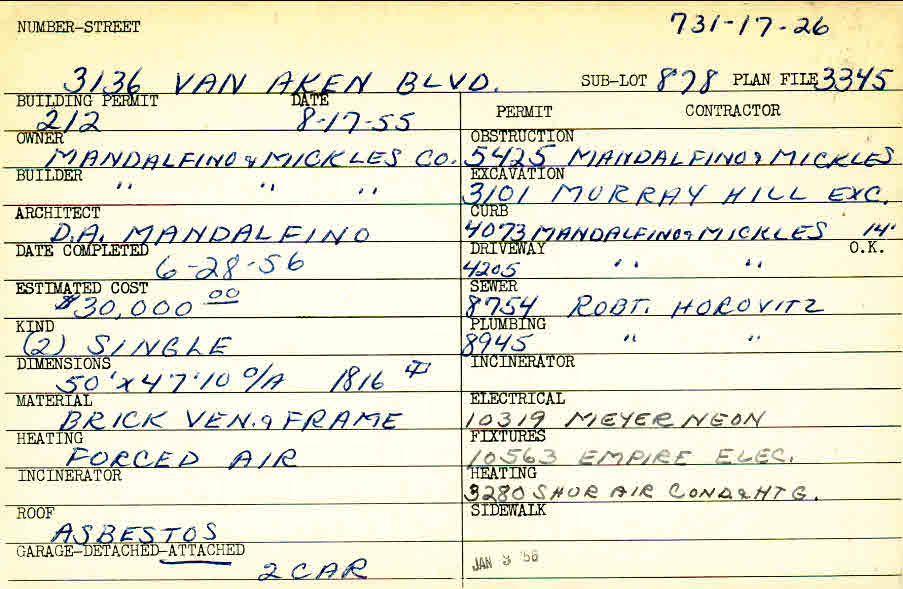 NUMBER-STREET
731-17-26
3136 VAN AKEN BLVD.
SUB-LOT 878 PLAN FILE 3345
BUILDING PERMIT DATE
212 8-17-55
OWNER
MANDALFINO & MICKLES CO.
BUILDER
" " "
ARCHITECT
D.A. MANDALFINO
DATE COMPLETED
6-28-56
ESTIMATED COST
$30,000 00
KIND
(2) SINGLE
DIMENSIONS
50'x47'10 O/A 1816
MATERIAL
BRICK VEN. & FRAME
HEATING
FORCED AIR
INCINERATOR
ROOF
ASBESTOS
GARAGE-DETACHED-ATTACHED
2 CAR
PERMIT CONTRACTOR
OBSTRUCTION
5425 MANDALFINO & MICKLES
EXCAVATION
3101 MURRAY HILL EXC.
CURB
4073 MANDALFINO & MICKLES 14'
DRIVEWAY O.K.
4205 " "
SEWER
8754 ROBT. HOROVITZ
PLUMBING
8945 " "
INCINERATOR
ELECTRICAL
10319 MEYER NEON
FIXTURES
10563 EMPIRE ELEC.
HEATING
3280 SHUR AIR COND & HTG.
SIDEWALK
JAN 3 '56